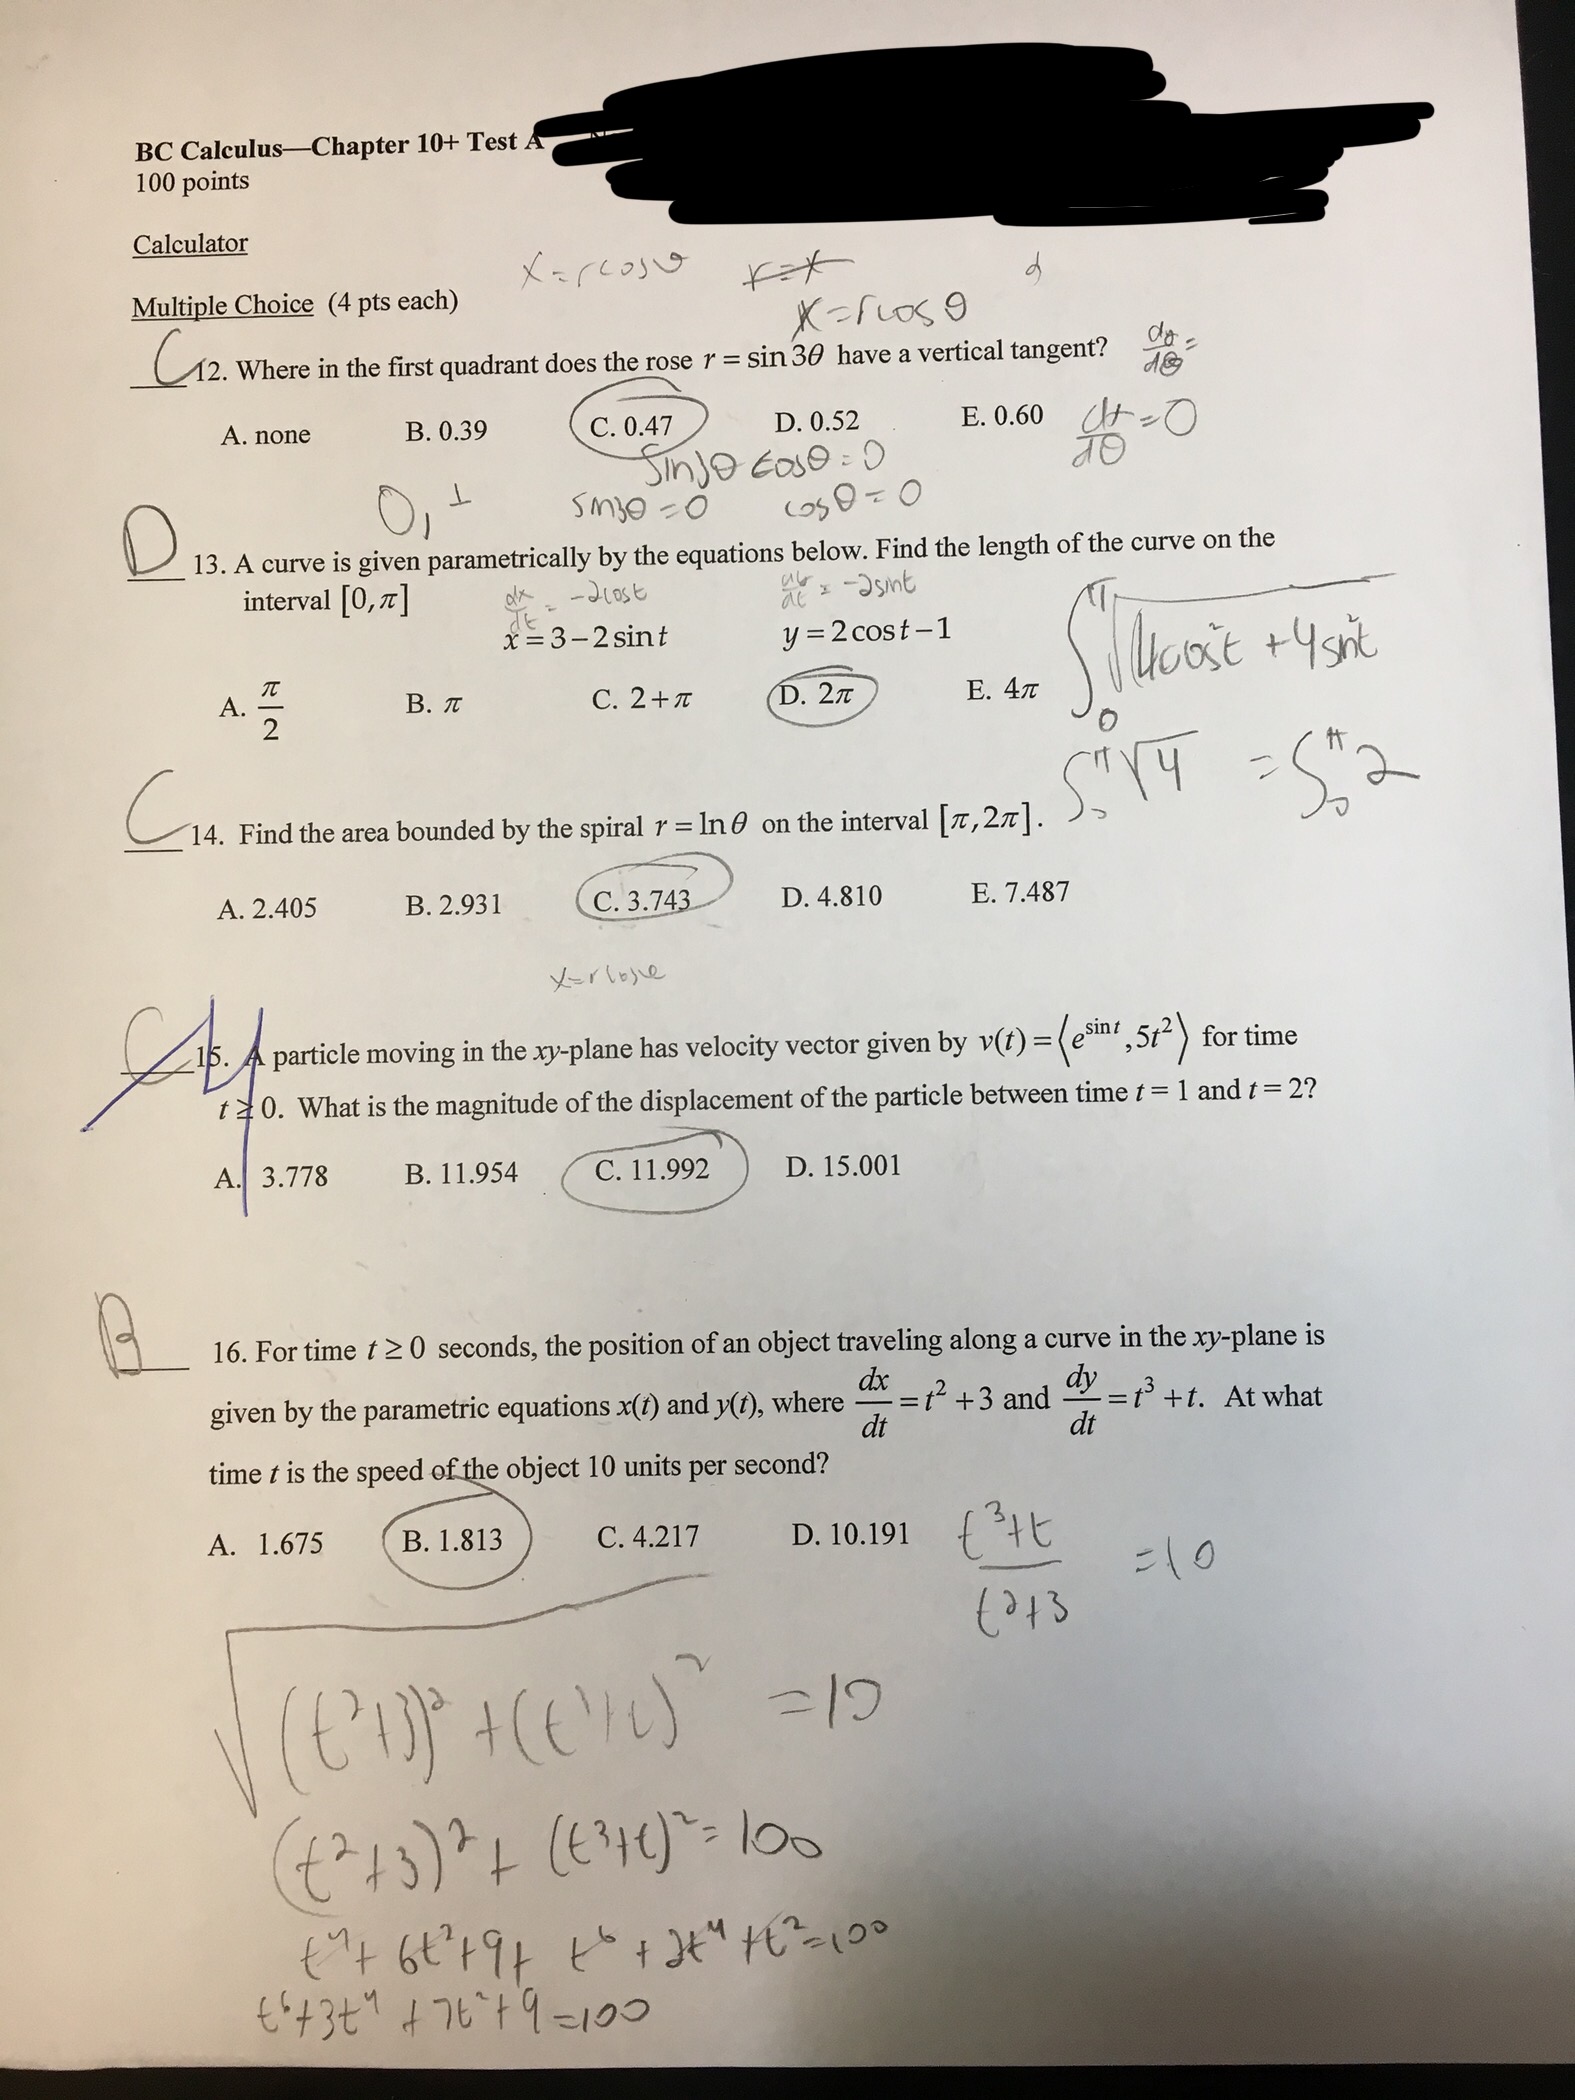 BC Calculus—Chapter 10+ Test A
100 points
Calculator
x=rcosθ r=x
Multiple Choice (4 pts each) x=rcosθ
C 12. Where in the first quadrant does the rose r = sin 3θ have a vertical tangent?
A. none B. 0.39 C. 0.47 D. 0.52 E. 0.60 dr/dθ = 0
sin3θ cosθ = 0
0, sin3θ = 0 cosθ = 0
D 13. A curve is given parametrically by the equations below. Find the length of the curve on the
interval [0, π] dx/dt = -2cost = -2sint
x = 3 − 2 sin t y = 2 cos t − 1 ∫₀^π √4cos²t + 4sin²t
A. π/2 B. π C. 2 + π D. 2π E. 4π
∫₀^π √4 = ∫₀^π 2
C 14. Find the area bounded by the spiral r = ln θ on the interval [π, 2π].
A. 2.405 B. 2.931 C. 3.743 D. 4.810 E. 7.487
C 15. A particle moving in the xy-plane has velocity vector given by v(t) = ⟨e^sin t, 5t²⟩ for time
t ≥ 0. What is the magnitude of the displacement of the particle between time t = 1 and t = 2?
A. 3.778 B. 11.954 C. 11.992 D. 15.001
B 16. For time t ≥ 0 seconds, the position of an object traveling along a curve in the xy-plane is
given by the parametric equations x(t) and y(t), where dx/dt = t² + 3 and dy/dt = t³ + t. At what
time t is the speed of the object 10 units per second?
A. 1.675 B. 1.813 C. 4.217 D. 10.191 t³+t/t²+3 = 10
√(t²+3)² + (t³+t)² = 10
(t²+3)² + (t³+t)² = 100
t⁴ + 6t² + 9 + t⁶ + 2t⁴ + t² = 100
t⁶ + 3t⁴ + 7t² + 9 = 100